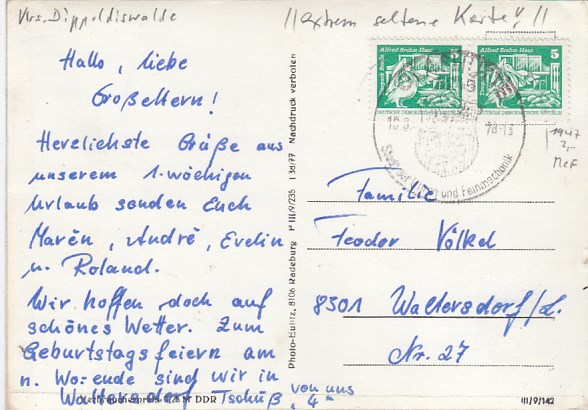 Krs. Dippoldiswalde
//extrem seltene Karte!//
Hallo, liebe
Großeltern!
Herzlichste Grüße aus
unserem 1-wöchigen
Urlaub senden Euch
Marén, André, Evelin
u. Roland.
Wir hoffen doch auf
schönes Wetter. Zum
Geburtstagsfeiern am
n. Wo.-ende sind wir in
Waltersdorf Tschüß, von uns
"4"
M DDR
Photo-Eulitz, 8106 Radeburg P III/9/235 I 38/77 Nachdruck verboten
Alfred Brehm Haus 5
Tierpark Berlin
DEUTSCHE DEMOKRATISCHE REPUBLIK
Alfred Brehm Haus 5
Tierpark Berlin
DEUTSCHE DEMOKRATISCHE REPUBLIK
18-13
Stadt der Uhren und Feinmechanik
1947
2,-
Familie
Teodor Völkel
8301 Waltersdorf/L.
Nr. 27
III/9/142